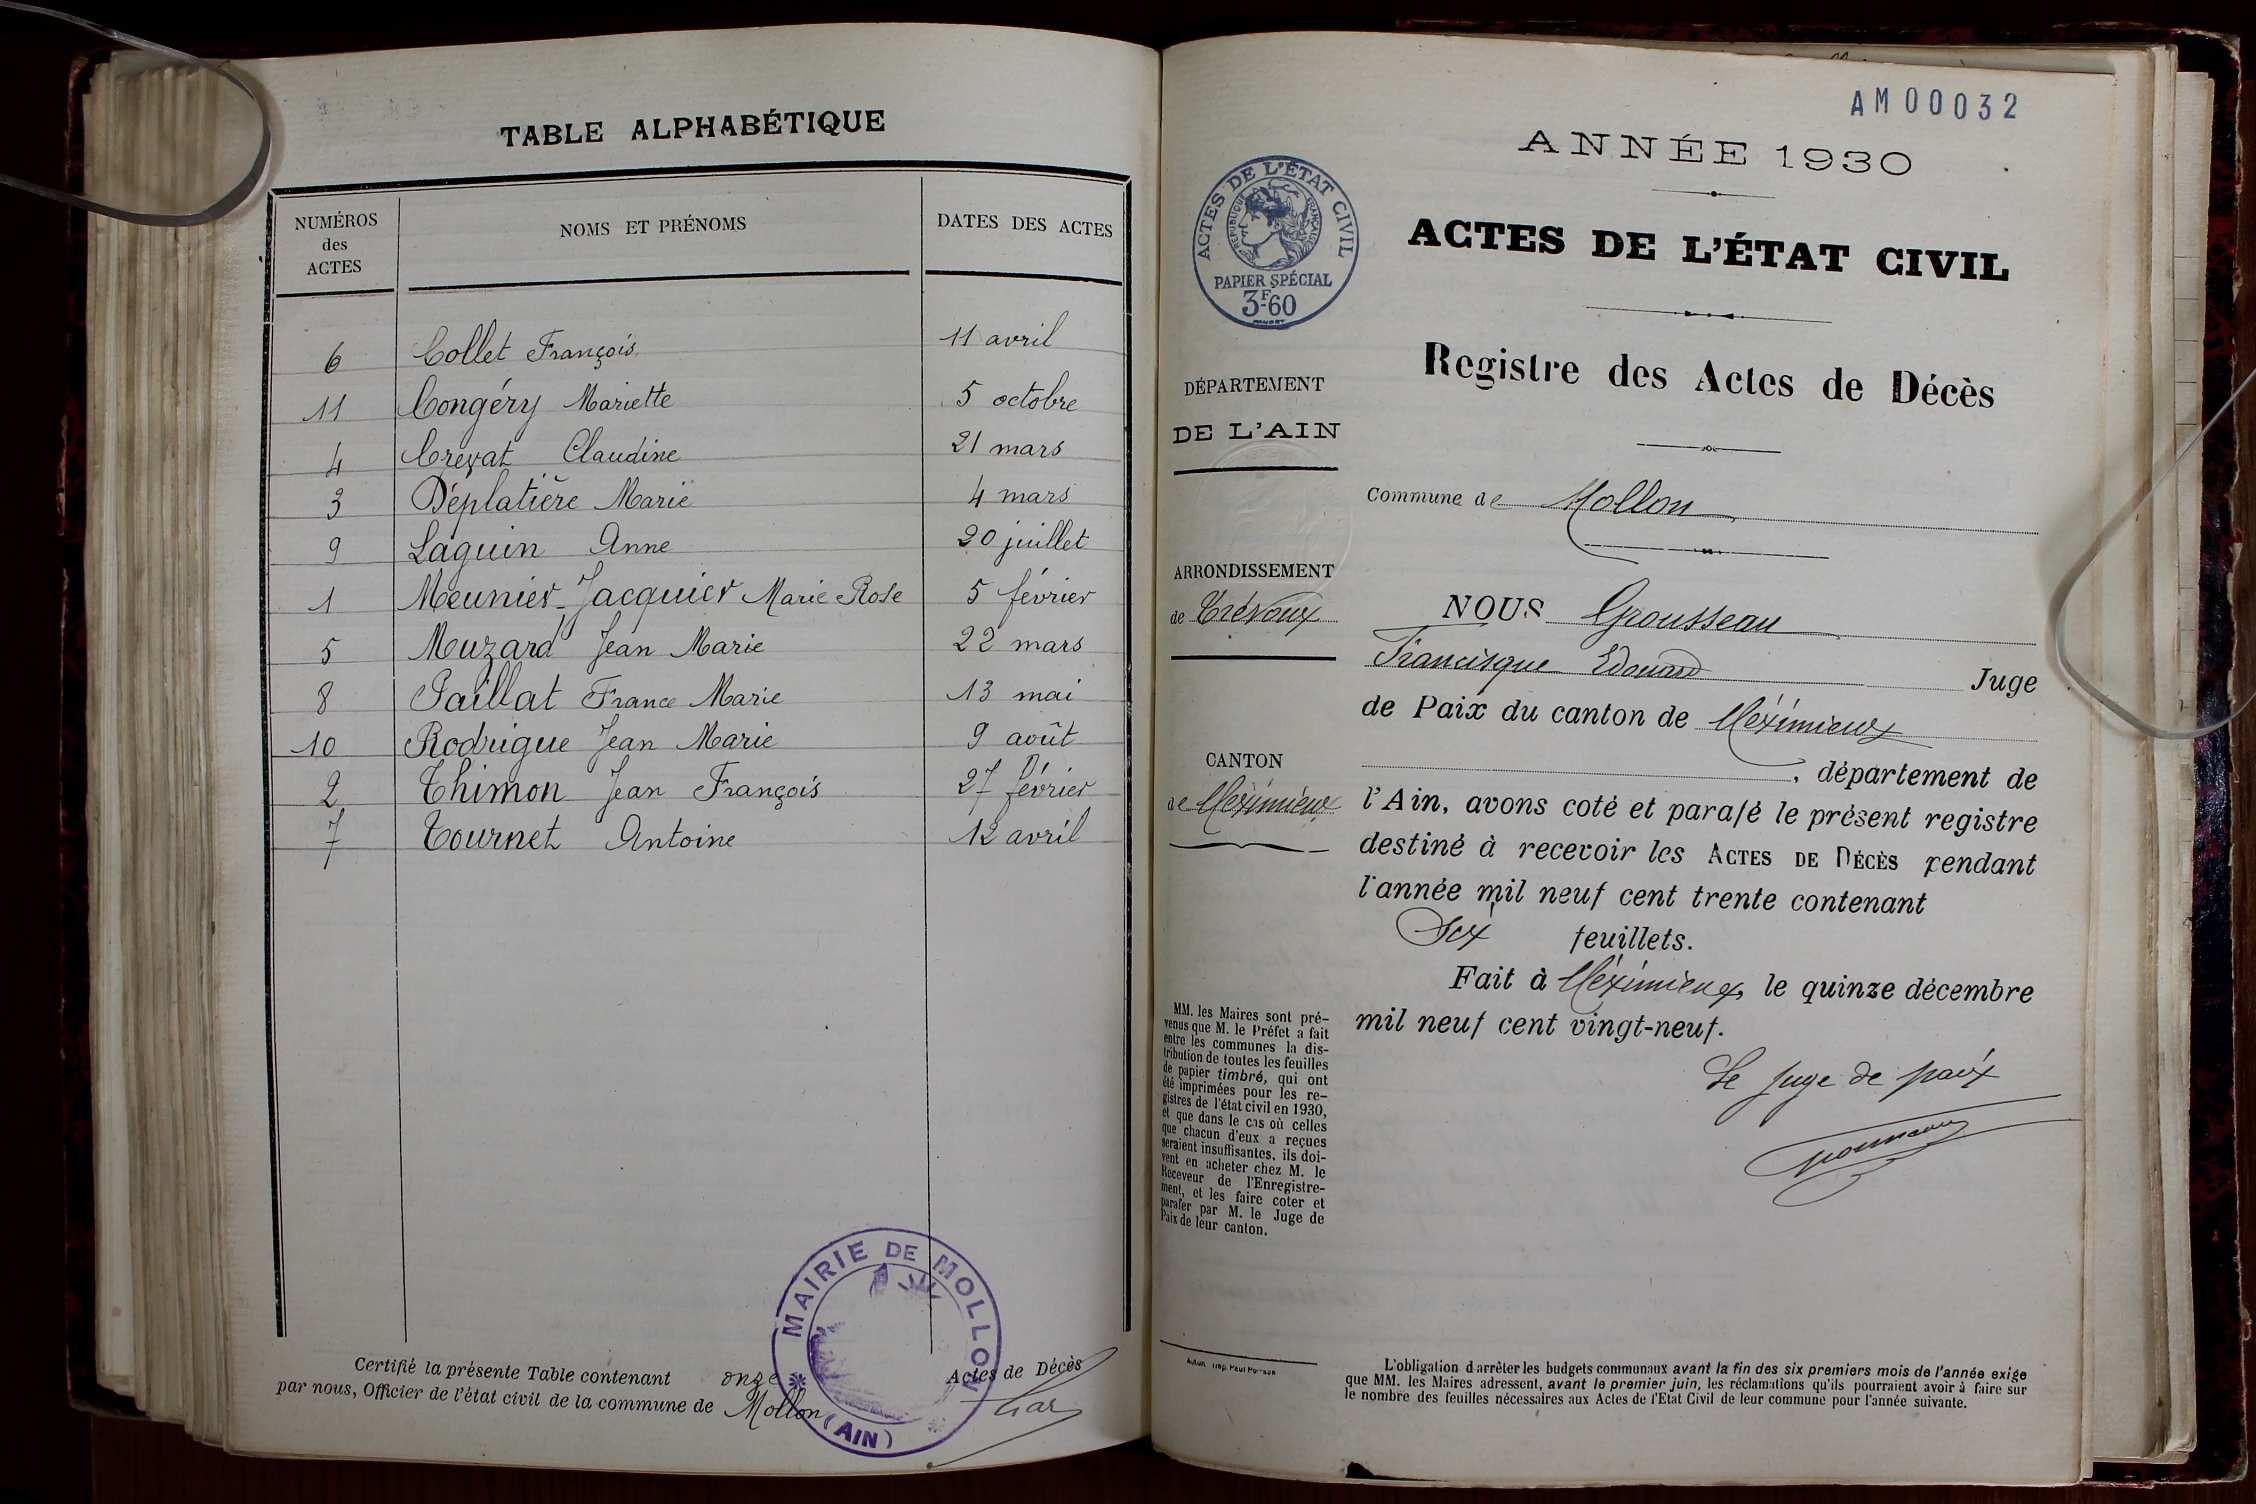 TABLE ALPHABÉTIQUE
NUMÉROS des ACTES NOMS ET PRÉNOMS DATES DES ACTES
6 Collet François 11 avril
11 Congéry Mariette 5 octobre
4 Crevat Claudine 21 mars
3 Déplatière Marie 4 mars
9 Laguin Anne 20 juillet
1 Meunier-Jacquier Marie Rose 5 février
5 Muzard Jean Marie 22 mars
8 Paillat France Marie 13 mai
10 Rodrigue Jean Marie 9 août
2 Thimon Jean François 27 février
7 Tournet Antoine 12 avril
Certifié la présente Table contenant onze Actes de Décès
par nous, Officier de l'état civil de la commune de Mollon
MAIRIE DE MOLLON
(AIN)
AM00032
ANNÉE 1930
ACTES DE L'ÉTAT CIVIL
RÉPUBLIQUE FRANÇAISE
PAPIER SPÉCIAL
3F60
ACTES DE L'ÉTAT CIVIL
Registre des Actes de Décès
DÉPARTEMENT
DE L'AIN
Commune de Mollon
ARRONDISSEMENT
de Trévoux
CANTON
de Méximieux
NOUS Grousseau
Francisque Edouard Juge
de Paix du canton de Méximieux
, département de
l'Ain, avons coté et parafé le présent registre
destiné à recevoir les ACTES DE DÉCÈS pendant
l'année mil neuf cent trente contenant
Six feuillets.
Fait à Méximieux, le quinze décembre
mil neuf cent vingt-neuf.
Le Juge de paix
MM. les Maires sont pré-
venus que M. le Préfet a fait
entre les communes la dis-
tribution de toutes les feuilles
de papier timbré, qui ont
été imprimées pour les re-
gistres de l'état civil en 1930,
et que dans le cas où celles
que chacun d'eux a reçues
seraient insuffisantes, ils doi-
vent en acheter chez M. le
Receveur de l'Enregistre-
ment, et les faire coter et
parafer par M. le Juge de
Paix de leur canton.
L'obligation d'arrêter les budgets communaux avant la fin des six premiers mois de l'année exige
que MM. les Maires adressent, avant le premier juin, les réclamations qu'ils pourraient avoir à faire sur
le nombre des feuilles nécessaires aux Actes de l'Etat Civil de leur commune pour l'année suivante.